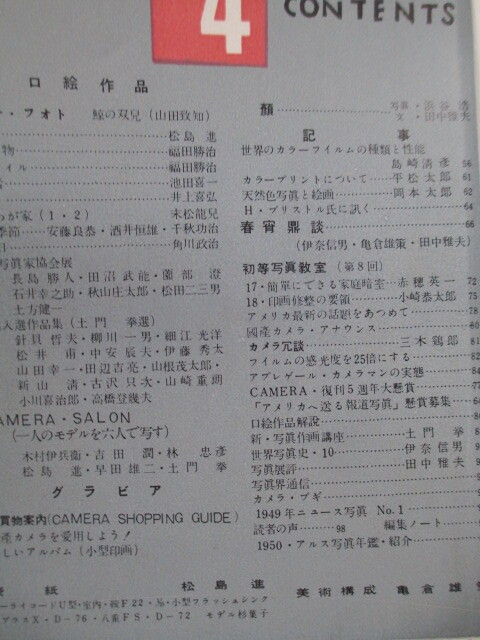 4
CONTENTS
口絵作品
フォト 鯨の双兒 (山田致知)
松島進
物 福田勝治
イル 福田勝治
池田喜一
井上喜弘
が家 (1・2) 末松龍兒
季節……安藤良恭・酒井恒雄・千秋功治
角川政治
写真家協会展
長島勝人・田沼武能・薗部 澄
石井幸之助・秋山庄太郎・松田二三男
土方健一
入選作品集 (土門 拳選)
針貝哲夫・柳川一男・細江光洋
松井 甫・中安辰夫・伊藤秀太
山田幸一・田辺吉亮・山根茂太郎・
新山 清・古沢只次・山崎重瑚
小川喜治郎・高橋登幾夫
AMERA・SALON
(一人のモデルを六人で写す)
木村伊兵衞・吉田 潤・林 忠彦
松島 進・早田雄二・土門 拳
グラビア
買物案内 (CAMERA SHOPPING GUIDE)
産カメラを愛用しよう!
しいアルバム (小型印画)
顏 写真・浜谷 浩
文・田中雅夫
記事
世界のカラーフイルムの種類と性能
島崎清彦 56
カラープリントについて……平松太郎 61
天然色写眞と絵画……岡本太郎 62
H・ブリストル氏に訊く 64
春宵鼎談 66
(伊奈信男・亀倉雄策・田中雅夫)
初等写眞教室 (第8回)
17・簡単にできる家庭暗室…赤穂英一 72
18・印画修整の要領……小崎恭太郎 75
アメリカ最新の話題をあつめて 78
國產カメラ・アナウンス 60
カメラ冗談……三木鶏郎 81
フイルムの感光度を25倍にする 82
アプレゲール・カメラマンの実態 84
CAMERA・復刊5週年大懸賞 77
「アメリカへ送る報道写眞」懸賞募集
口絵作品解説
新・写眞作画講座……土門 拳
世界写眞史・10……伊奈信男
写眞展評……田中雅夫
写眞界通信
カメラ・ブギ
1949年ニュース写眞 No.1
読者の声……98 編集ノート
1950・アルス写眞年鑑・紹介
紙 松島進 美術構成 亀倉雄
ーライコードU型・室内・絞F22・½・小型フラッシュシンク
プラスX・D-76・八乗FS・D-72 モデル杉葉子